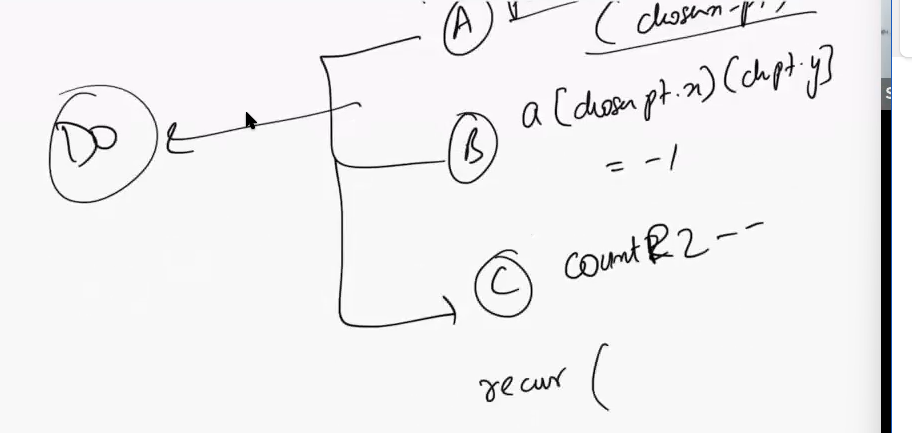 A
(chosen-pt)
DO
B a[chosen pt.x)(chpt.y]
= -1
C countR2--
recur (